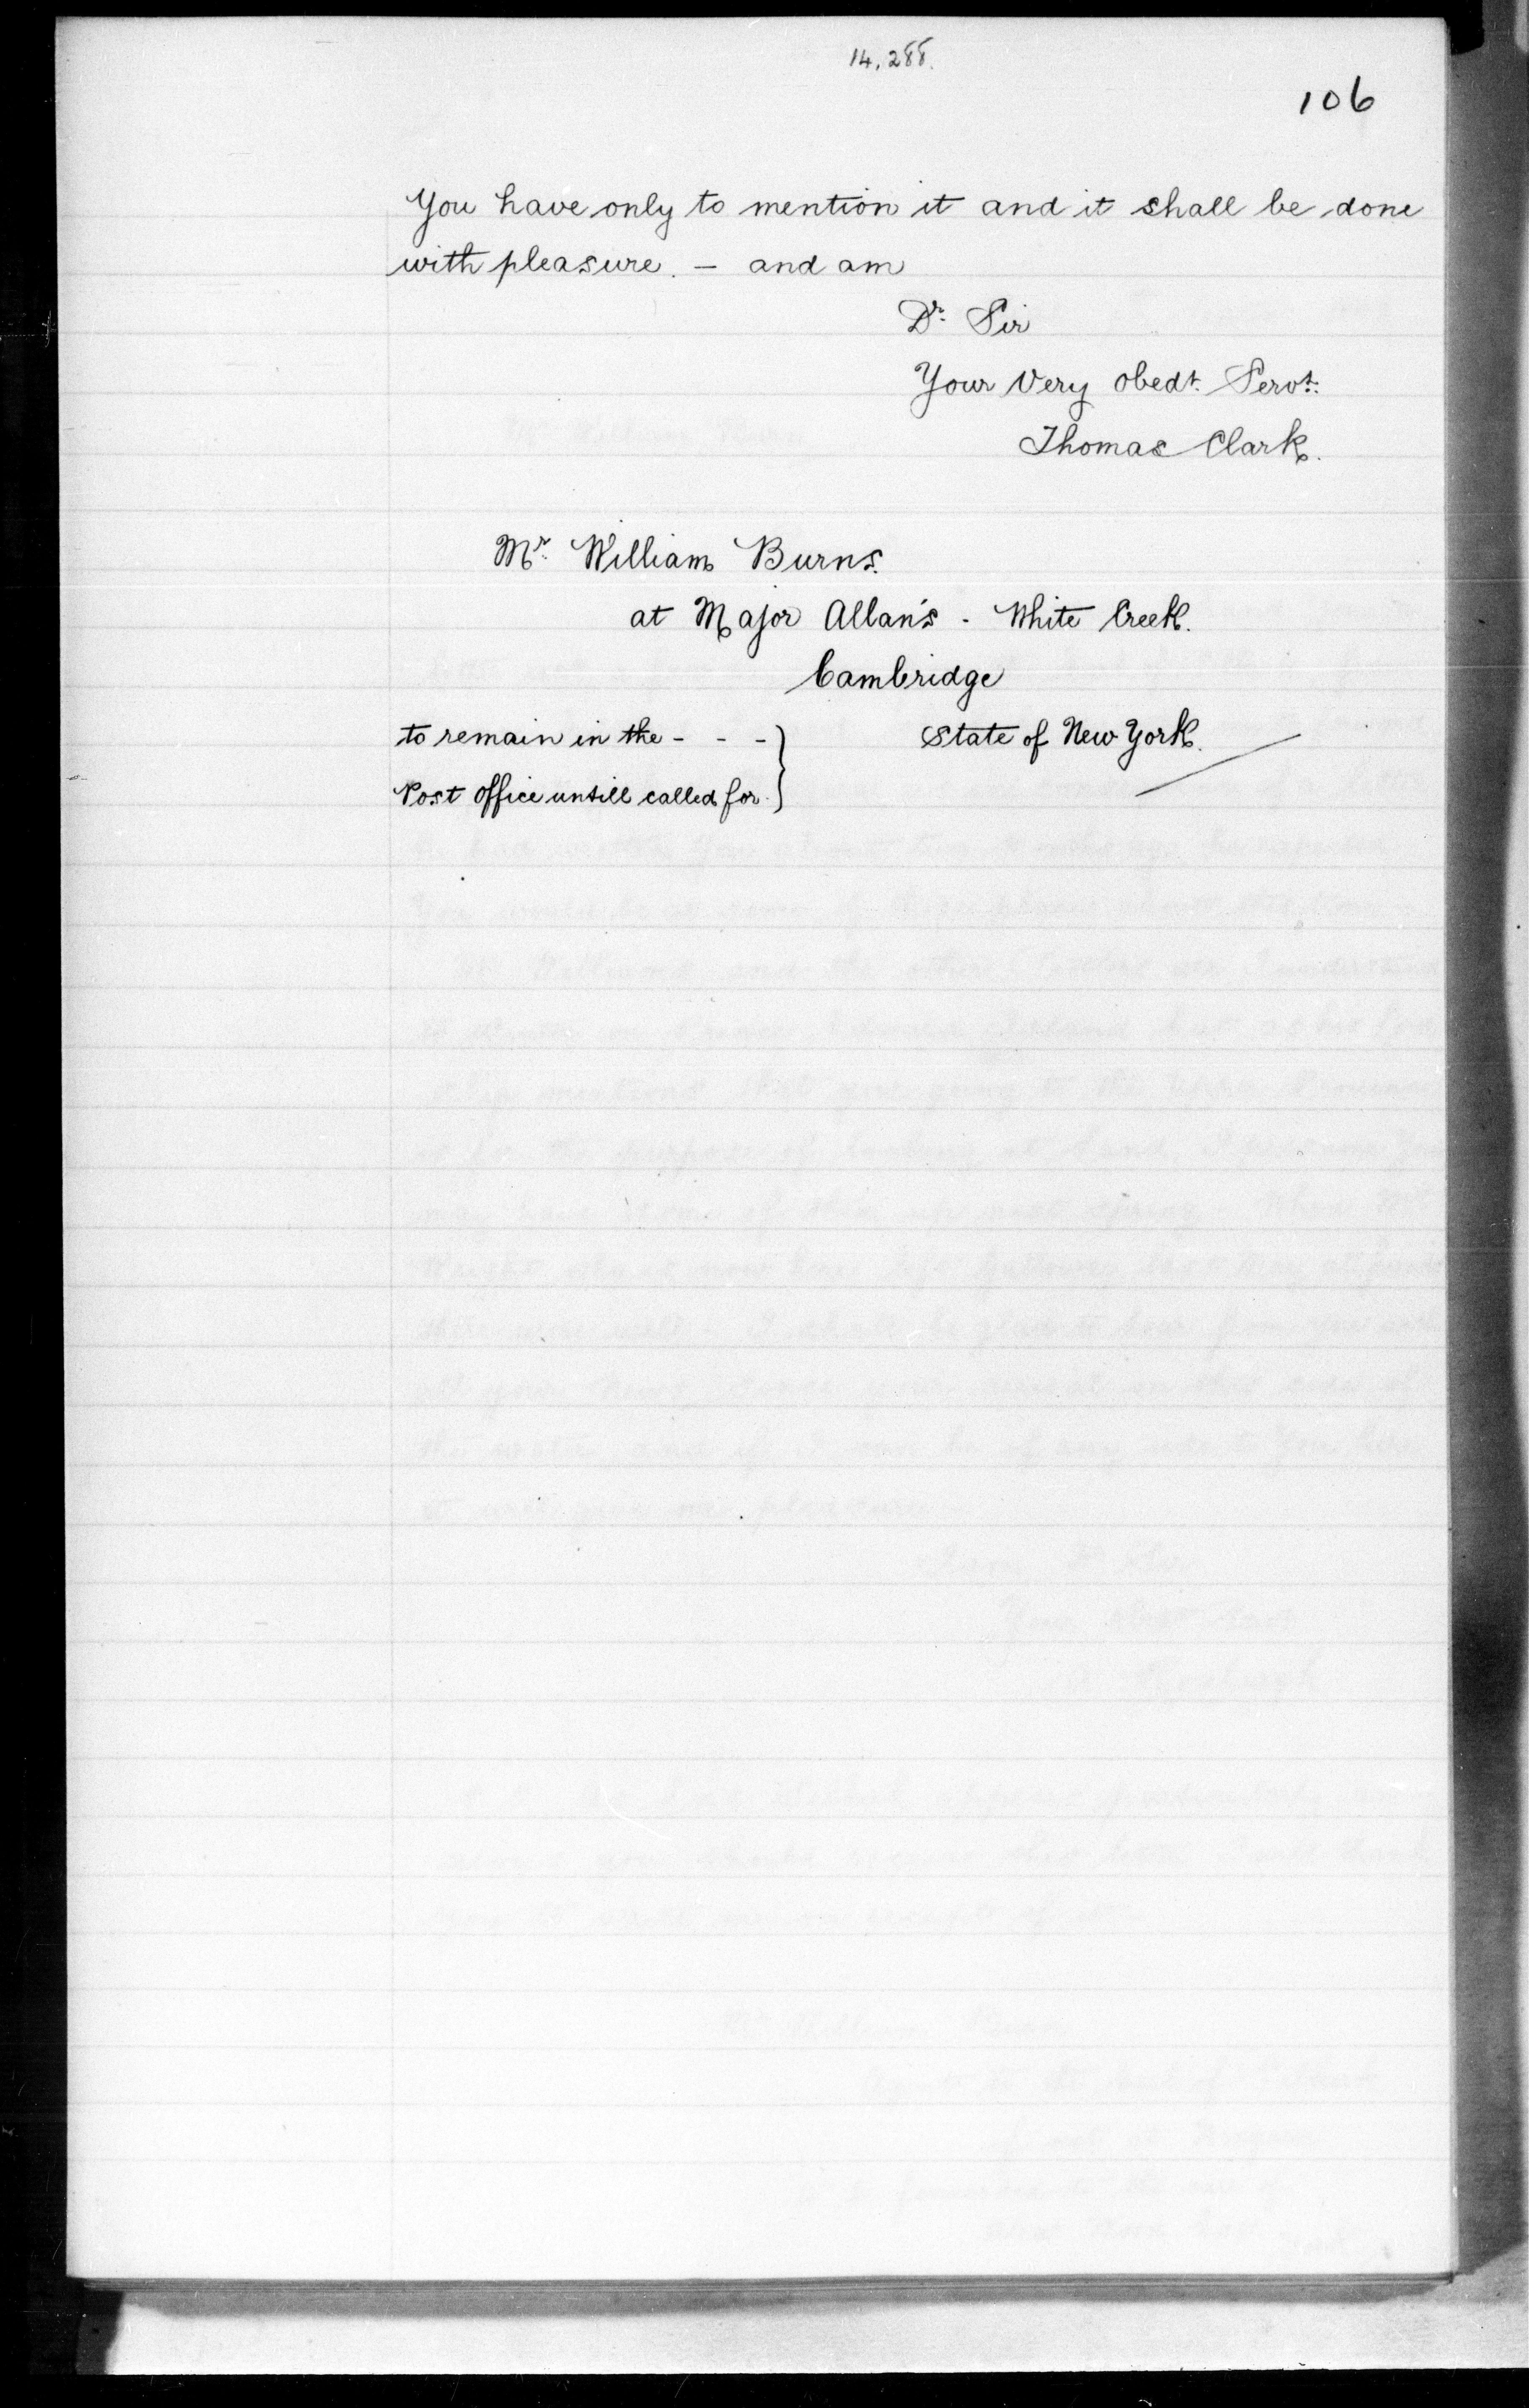 14,288.
106
You have only to mention it and it shall be done
with pleasure. – and am
Dr. Sir
Your Very Obedt. Servt.
Thomas Clark.
Mr. William Burns.
at Major Allan's - White Creek.
Cambridge
to remain in the - - - } State of New York.
Post Office untill called for. }